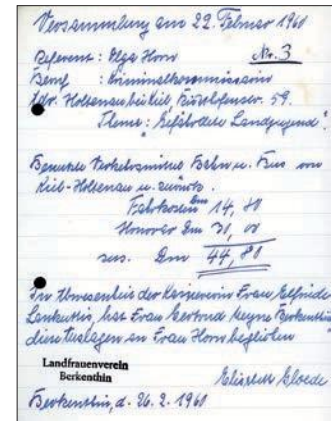 Versammlung am 22. Februar 1961
Referent: Olga Horn Nr. 3
Beruf: Kriminalkommissarin
Adr. Holtenau bei Kiel, 59.
Thema: "Gefährdete Landjugend".
Benutzte Verkehrsmittel Bahn u. Bus von
Kiel-Holtenau u. zurück.
Fahrkosten Dm 14,80
Honorar Dm 30,00
zus. Dm 44,80
In Abwesenheit der Kassiererin Frau Elfriede
hat Frau Gertrud Berkenthin
diese Auslagen an Frau Horn beglichen
Landfrauenverein
Berkenthin
Elisabeth Gloede
Berkenthin, d. 26.2.1961